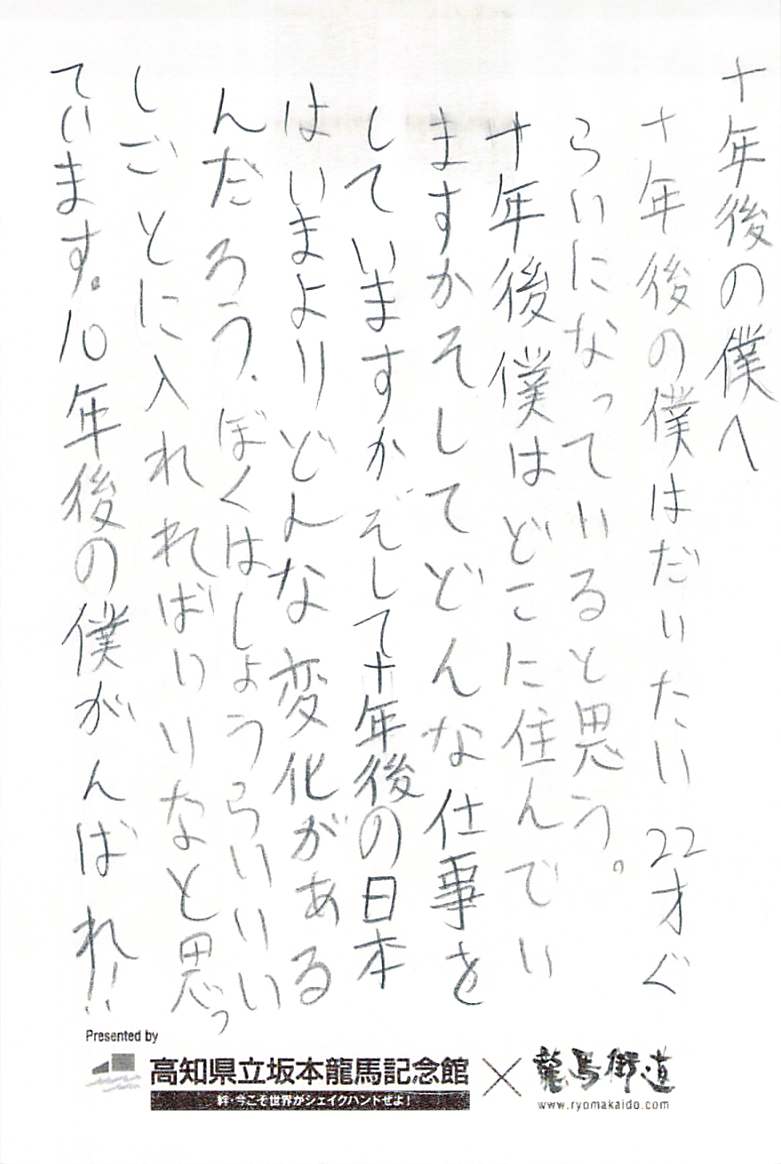 十年後の僕へ
十年後の僕はだいたい22才ぐ
らいになっていると思う。
十年後僕はどこに住んでい
ますかそしてどんな仕事を
していますかぞして十年後の日本
はいまよりどんな変化がある
んだろう.ぼくはしょうらいいい
しごとに入れればいいなと思っ
ています。10年後の僕がんばれ!!
Presented by
高知県立坂本龍馬記念館×龍馬街道
絆・今こそ世界がシェイクハンドぜよ!
www.ryomakaido.com